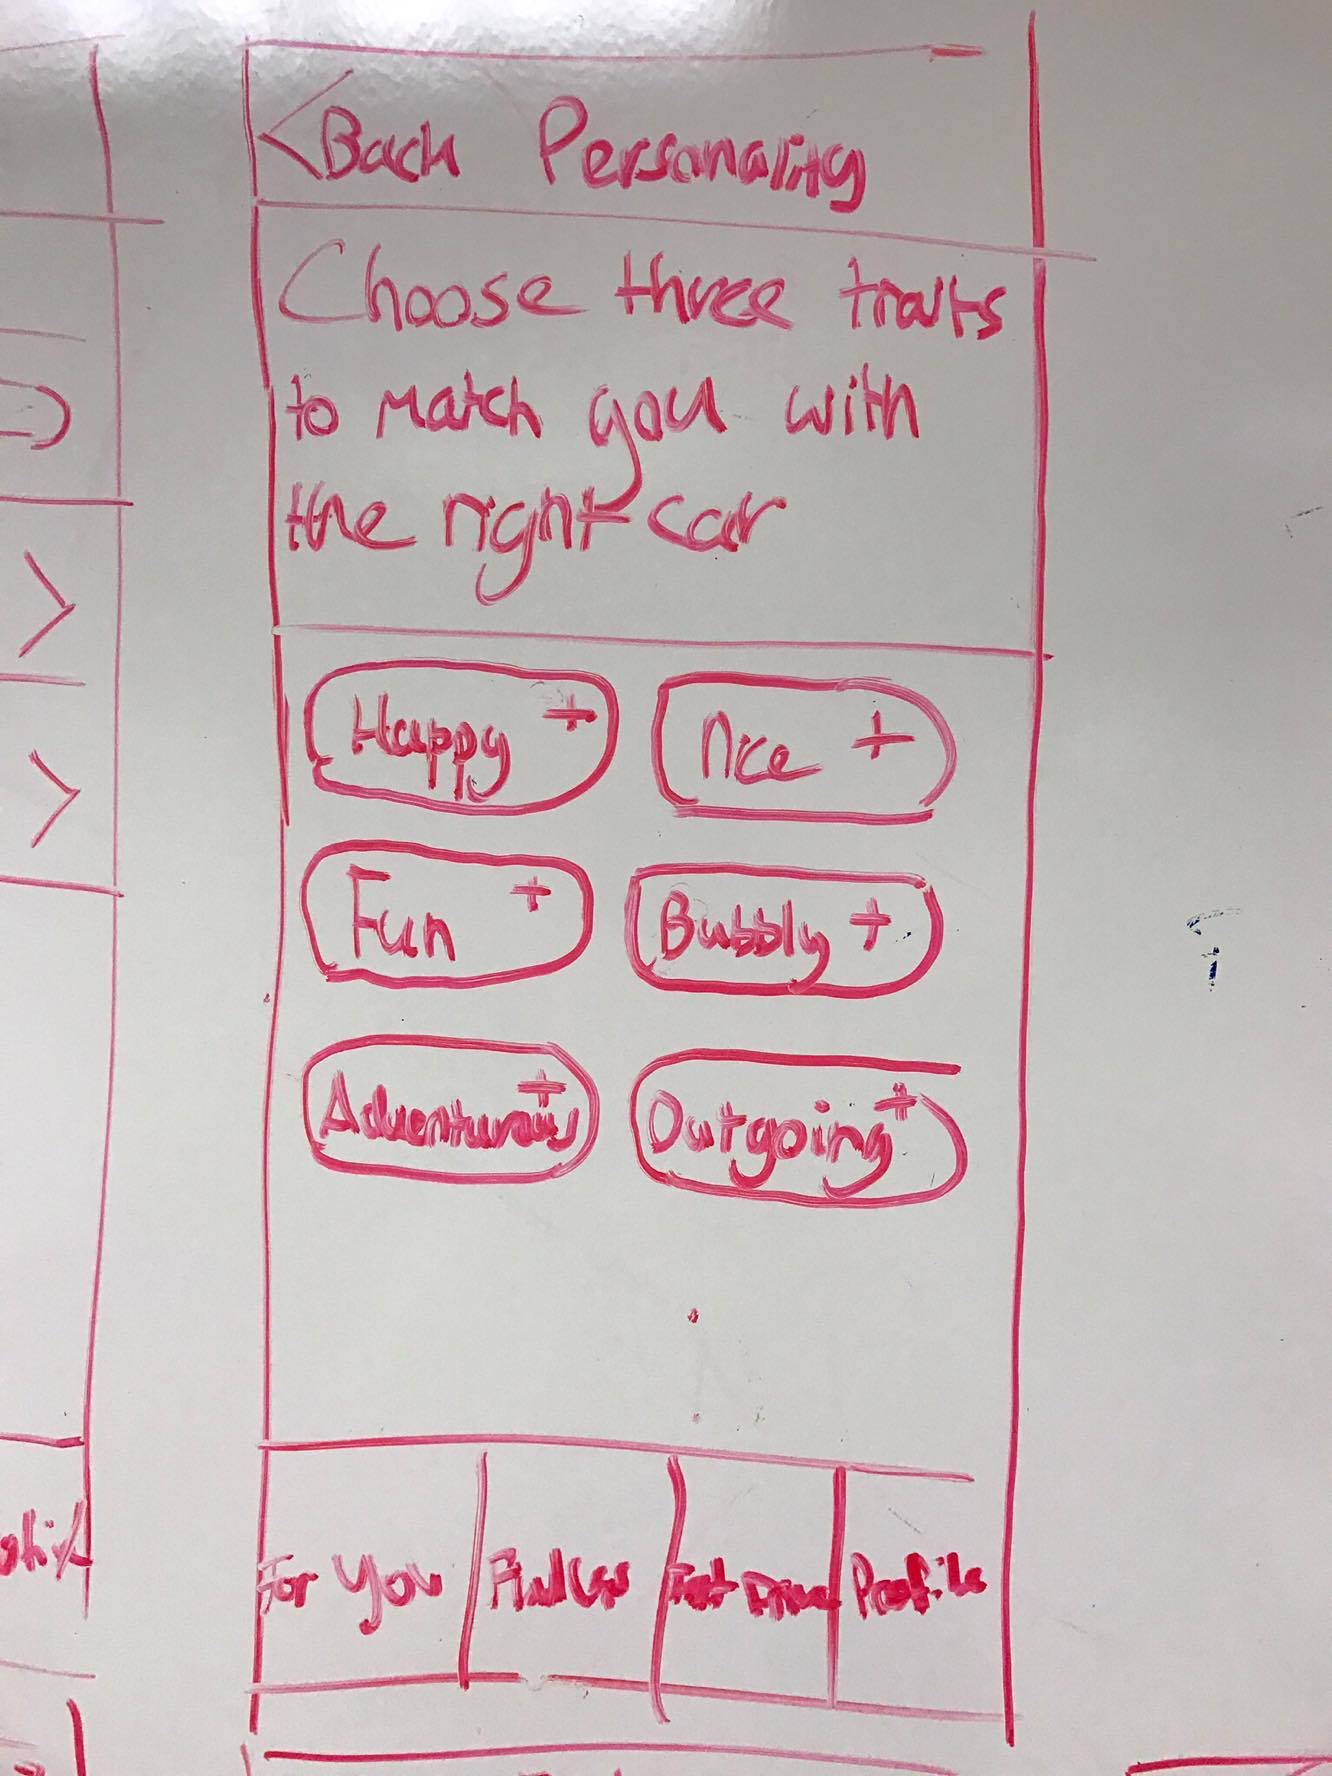 < Back Personality
Choose three traits
to match you with
the right car
Happy +
Nice +
Fun +
Bubbly +
Adventurous +
Outgoing +
For You
Find Us
Test Drive
Profile